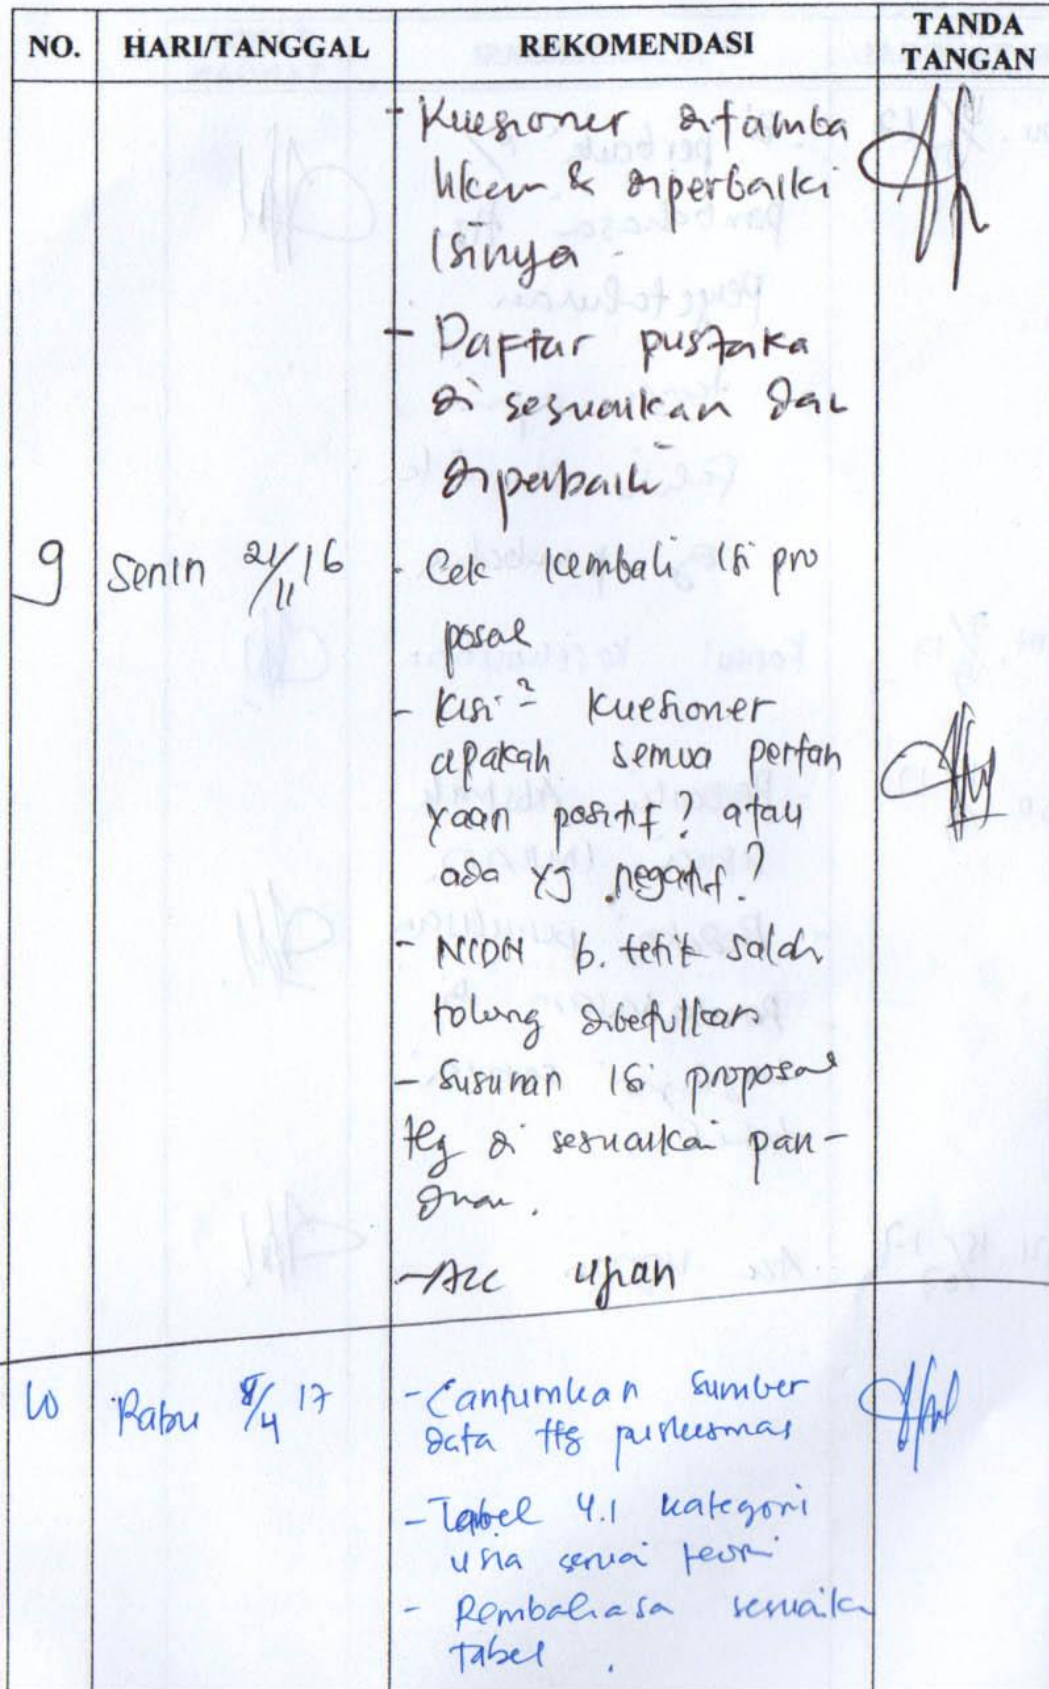 NO. HARI/TANGGAL REKOMENDASI TANDA TANGAN
- Kuesioner ditamba
hkan & diperbaiki
isinya
- Daftar pustaka
di sesuaikan dan
diperbaiki
9 Senin 21/11/16 - Cek kembali isi pro
posal
- Kisi² kuesioner
apakah semua pertan
yaan positif? atau
ada yg negatif?
- NIDN b. tetik salah
tolong dibetulkan
- Susunan isi proposal
tlg di sesuaikan pan-
duan.
- Acc ujian
10 Rabu 8/4 17 - Cantumkan sumber
data ttg puskesmas
- Tabel 4.1 kategori
usia sesuai teori
- Pembahasa sesuaika
tabel.